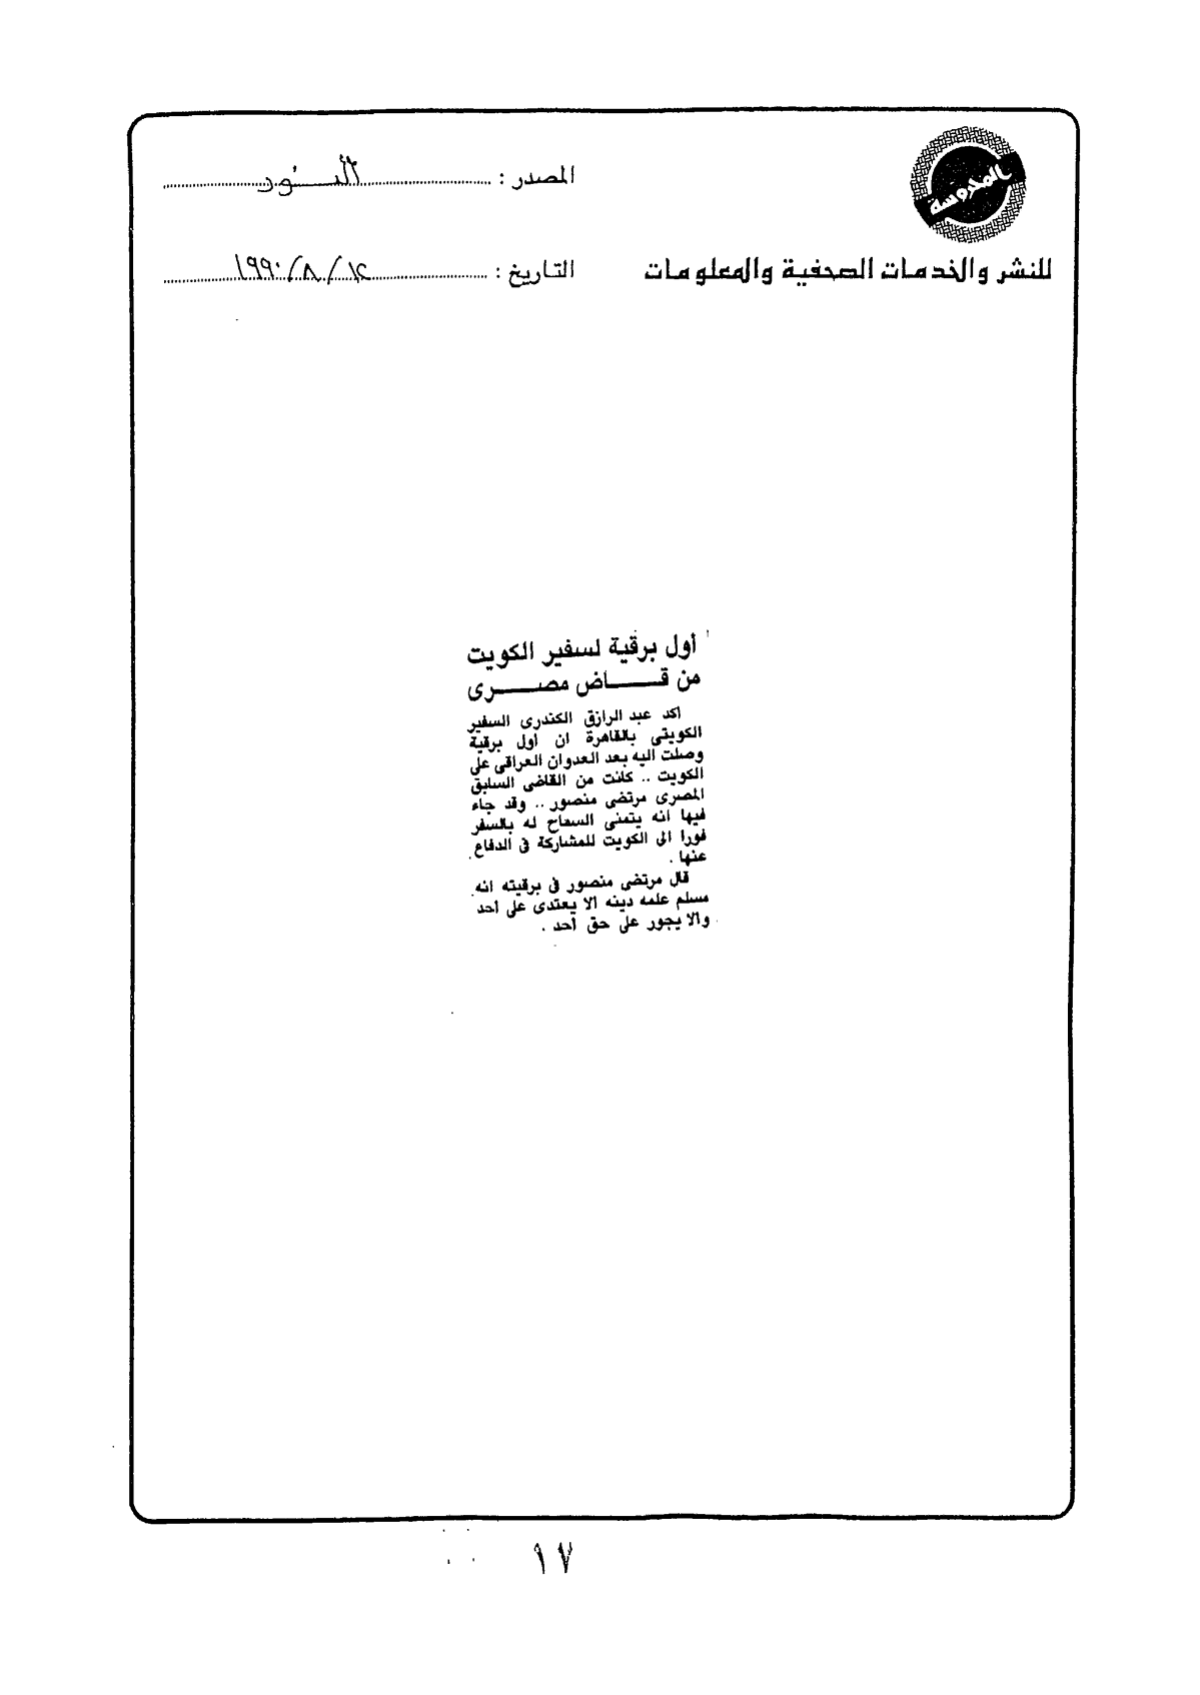 المحروسة
للنشر والخدمات الصحفية والمعلومات
المصدر : النور
التاريخ : ١٤ / ٨ / ١٩٩٠
أول برقية لسفير الكويت
من قـــــاض مصـــــرى
اكد عبد الرازق الكندرى السفير
الكويتى بالقاهرة ان أول برقية
وصلت اليه بعد العدوان العراقى على
الكويت .. كانت من القاضى السابق
المصرى مرتضى منصور .. وقد جاء
فيها انه يتمنى السماح له بالسفر
فورا الى الكويت للمشاركة فى الدفاع
عنها .
قال مرتضى منصور فى برقيته انه
مسلم علمه دينه الا يعتدى على أحد
والا يجور على حق أحد .
١٧